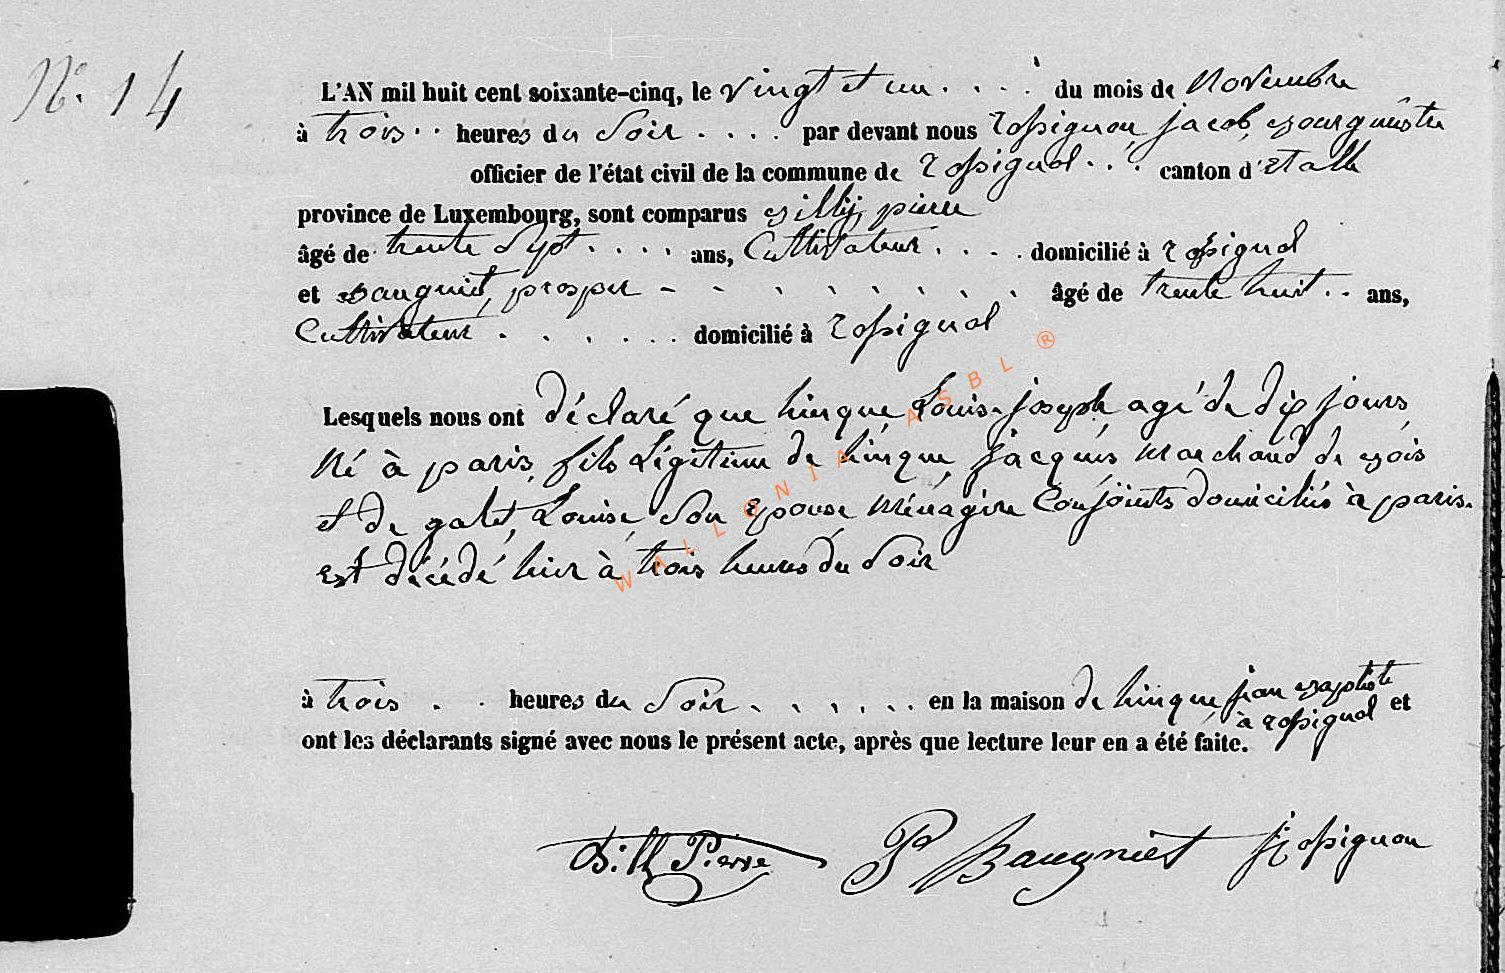 N°. 14
L'AN mil huit cent soixante-cinq, le vingt et un . . . . du mois de Novembre
à trois . . heures du soir . . . . par devant nous Rossignon, jacob, Bourgmestre
officier de l'état civil de la commune de Rossignol . . . canton d'Etalle
province de Luxembourg, sont comparus Billy, pierre
âgé de trente sept . . . . ans, Cultivateur . . . . domicilié à Rossignol
et Baugniet, prosper - - - . . . . . . âgé de trente huit . . ans,
Cultivateur . . . . . . domicilié à Rossignol
Lesquels nous ont déclaré que hinque Louis-joseph agé de dix jours
Né à paris, fils Légitime de hinque, jacques marchand de Bois
et de galet, Louise, son Epouse Ménagère Conjoints domiciliés à paris.
Est décédé hier à trois heures du Soir
à trois . . heures du Soir . . . . . . en la maison de hinque, jean Baptiste
à Rossignol et
ont les déclarants signé avec nous le présent acte, après que lecture leur en a été faite.
Billy Pierre P Baugniet J Rossignon
WALLONIA ASBL ®